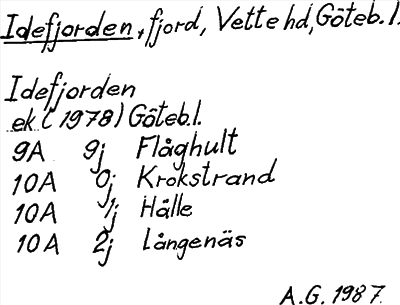 Idefjorden, fjord, Vette hd, Göteb.l.
Idefjorden
ek. (1978) Göteb.l.
9A 9j Flåghult
10A 0j Krokstrand
10A 1j Hälle
10A 2j Långenäs
A.G. 1987.